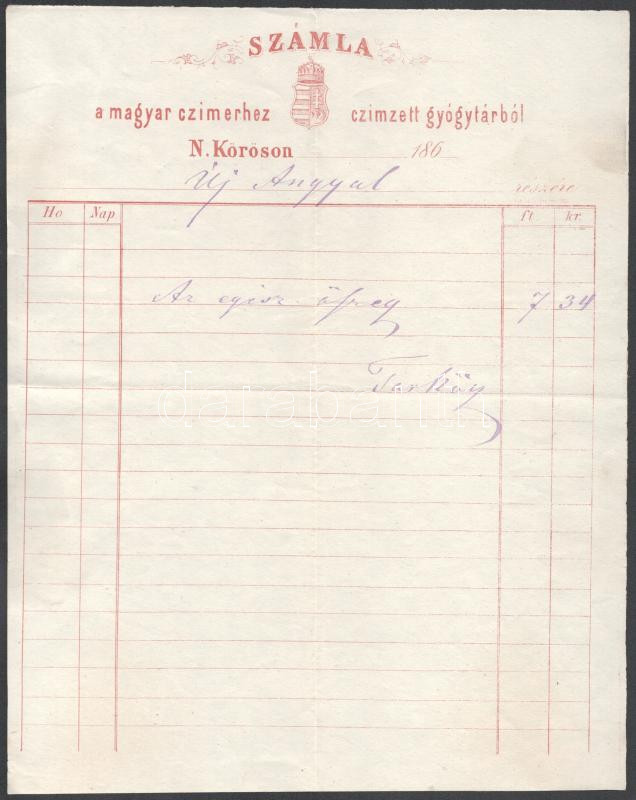 SZÁMLA
a magyar czimerhez czimzett gyógytárból
N. Körösön 186
Uj Angyal részére
Ho Nap ft kr.
Az egész összeg 7 34
darabanth